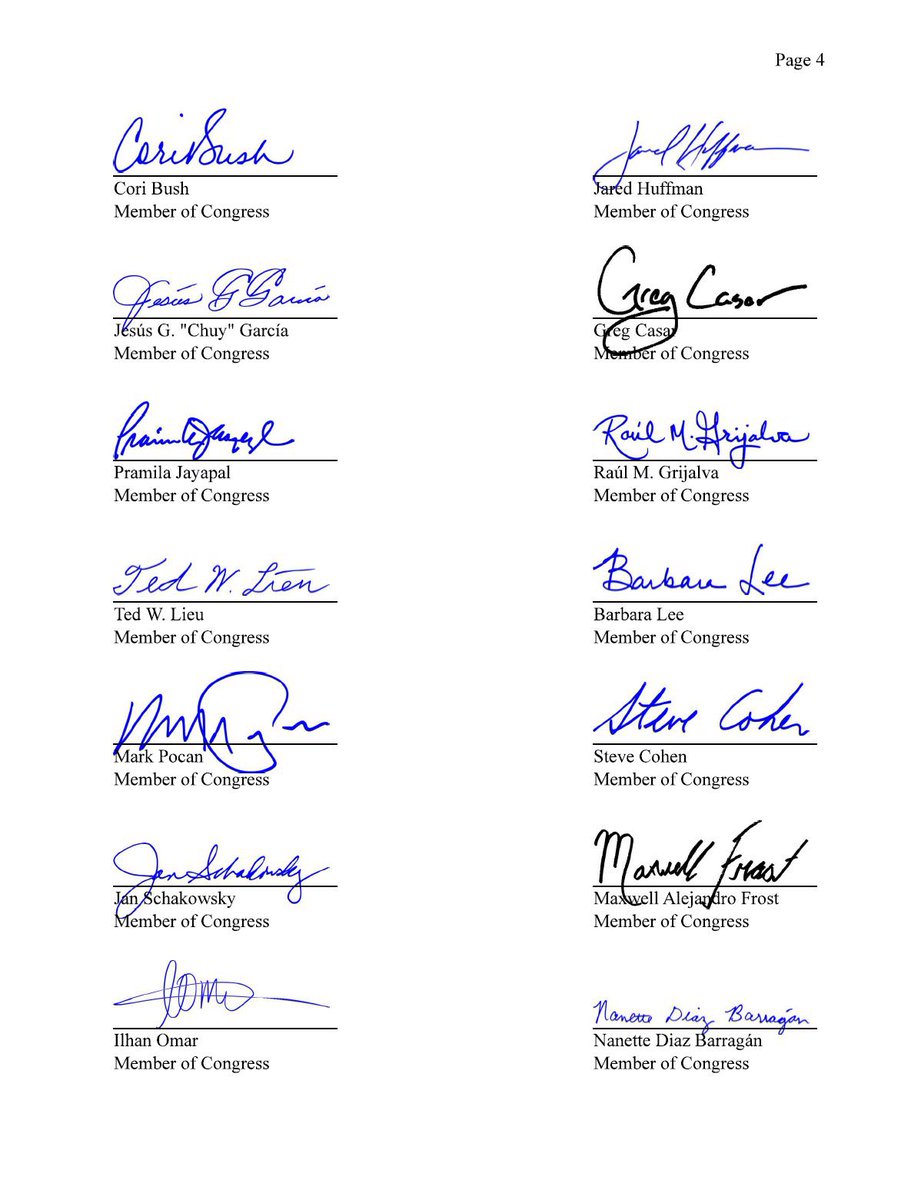 Page 4
Cori Bush
Cori Bush
Member of Congress
Jared Huffman
Jared Huffman
Member of Congress
Jesús G García
Jesús G. "Chuy" García
Member of Congress
Greg Casar
Greg Casar
Member of Congress
Pramila Jayapal
Pramila Jayapal
Member of Congress
Raúl M. Grijalva
Raúl M. Grijalva
Member of Congress
Ted W. Lieu
Ted W. Lieu
Member of Congress
Barbara Lee
Barbara Lee
Member of Congress
Mark Pocan
Member of Congress
Steve Cohen
Steve Cohen
Member of Congress
Jan Schakowsky
Jan Schakowsky
Member of Congress
Maxwell Frost
Maxwell Alejandro Frost
Member of Congress
Ilhan Omar
Member of Congress
Nanette Diaz Barragán
Nanette Diaz Barragán
Member of Congress